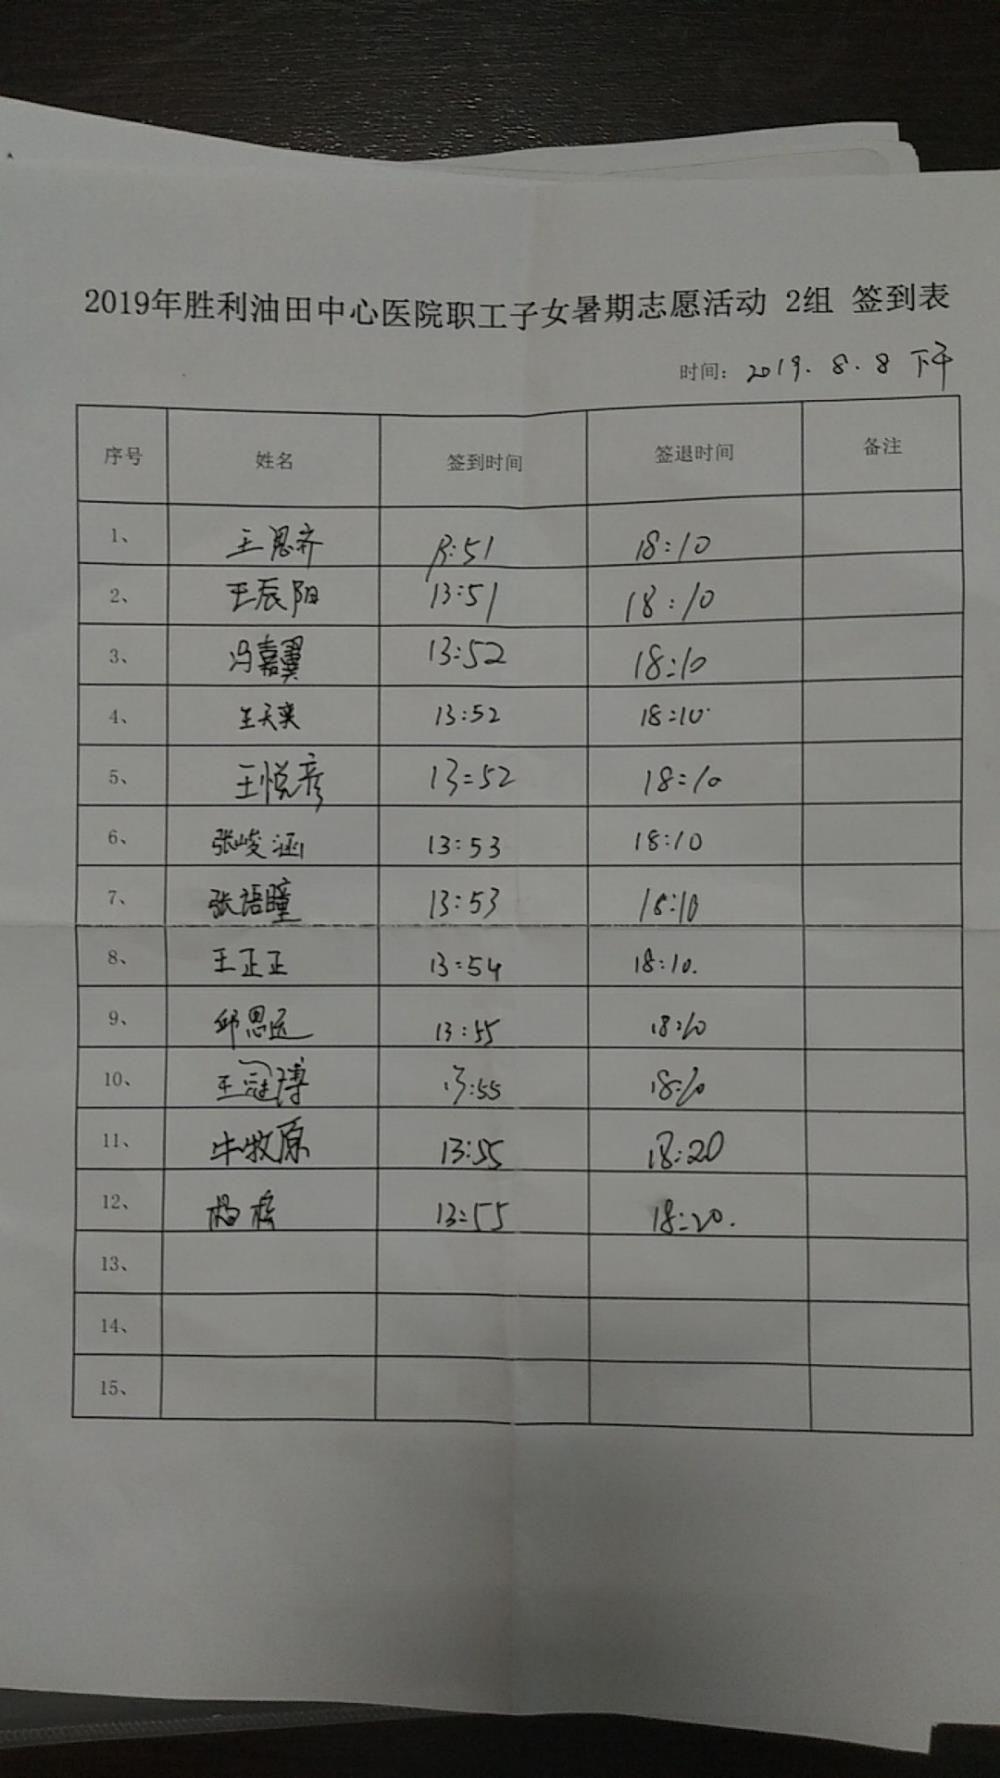 2019年胜利油田中心医院职工子女暑期志愿活动 2组 签到表
时间: 2019. 8. 8 下午
序号 姓名 签到时间 签退时间 备注
1、 王思齐 13:51 18:10
2、 王辰阳 13:51 18:10
3、 冯嘉翼 13:52 18:10
4、 王天奕 13:52 18:10
5、 王悦彦 13=52 18=10
6、 张峻涵 13:53 18:10
7、 张语瞳 13:53 18:10
8、 王正正 13:54 18:10.
9、 邱思远 13:55 18:10
10、 王冠博 13:55 18:10
11、 牛牧原 13:55 18:20
12、 杨 13:55 18:20.
13、
14、
15、